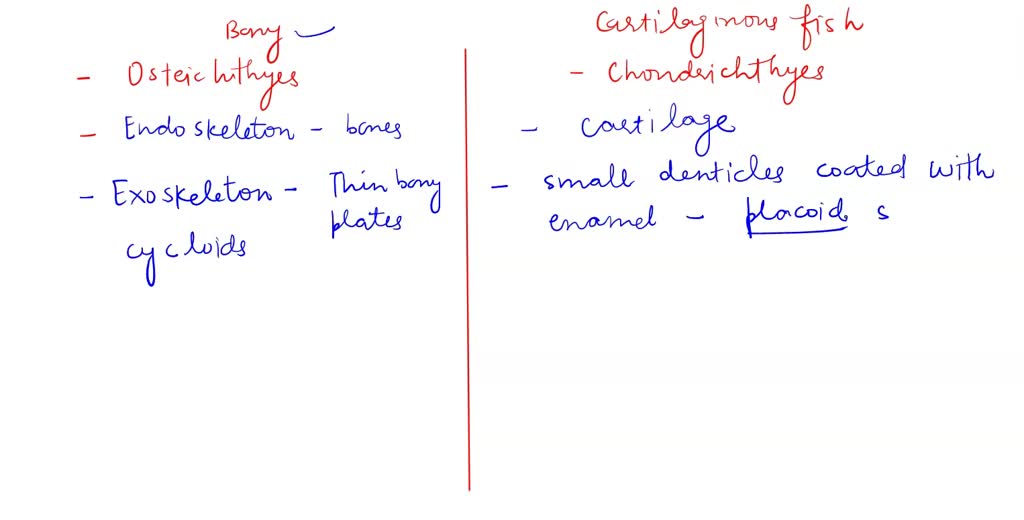 Bony
- Osteichthyes
- Endoskeleton - bones
- Exoskeleton - Thin bony
plates
cycloids
Cartilaginous fish
- Chondrichthyes
- cartilage
- small denticles coated with
enamel - placoid s